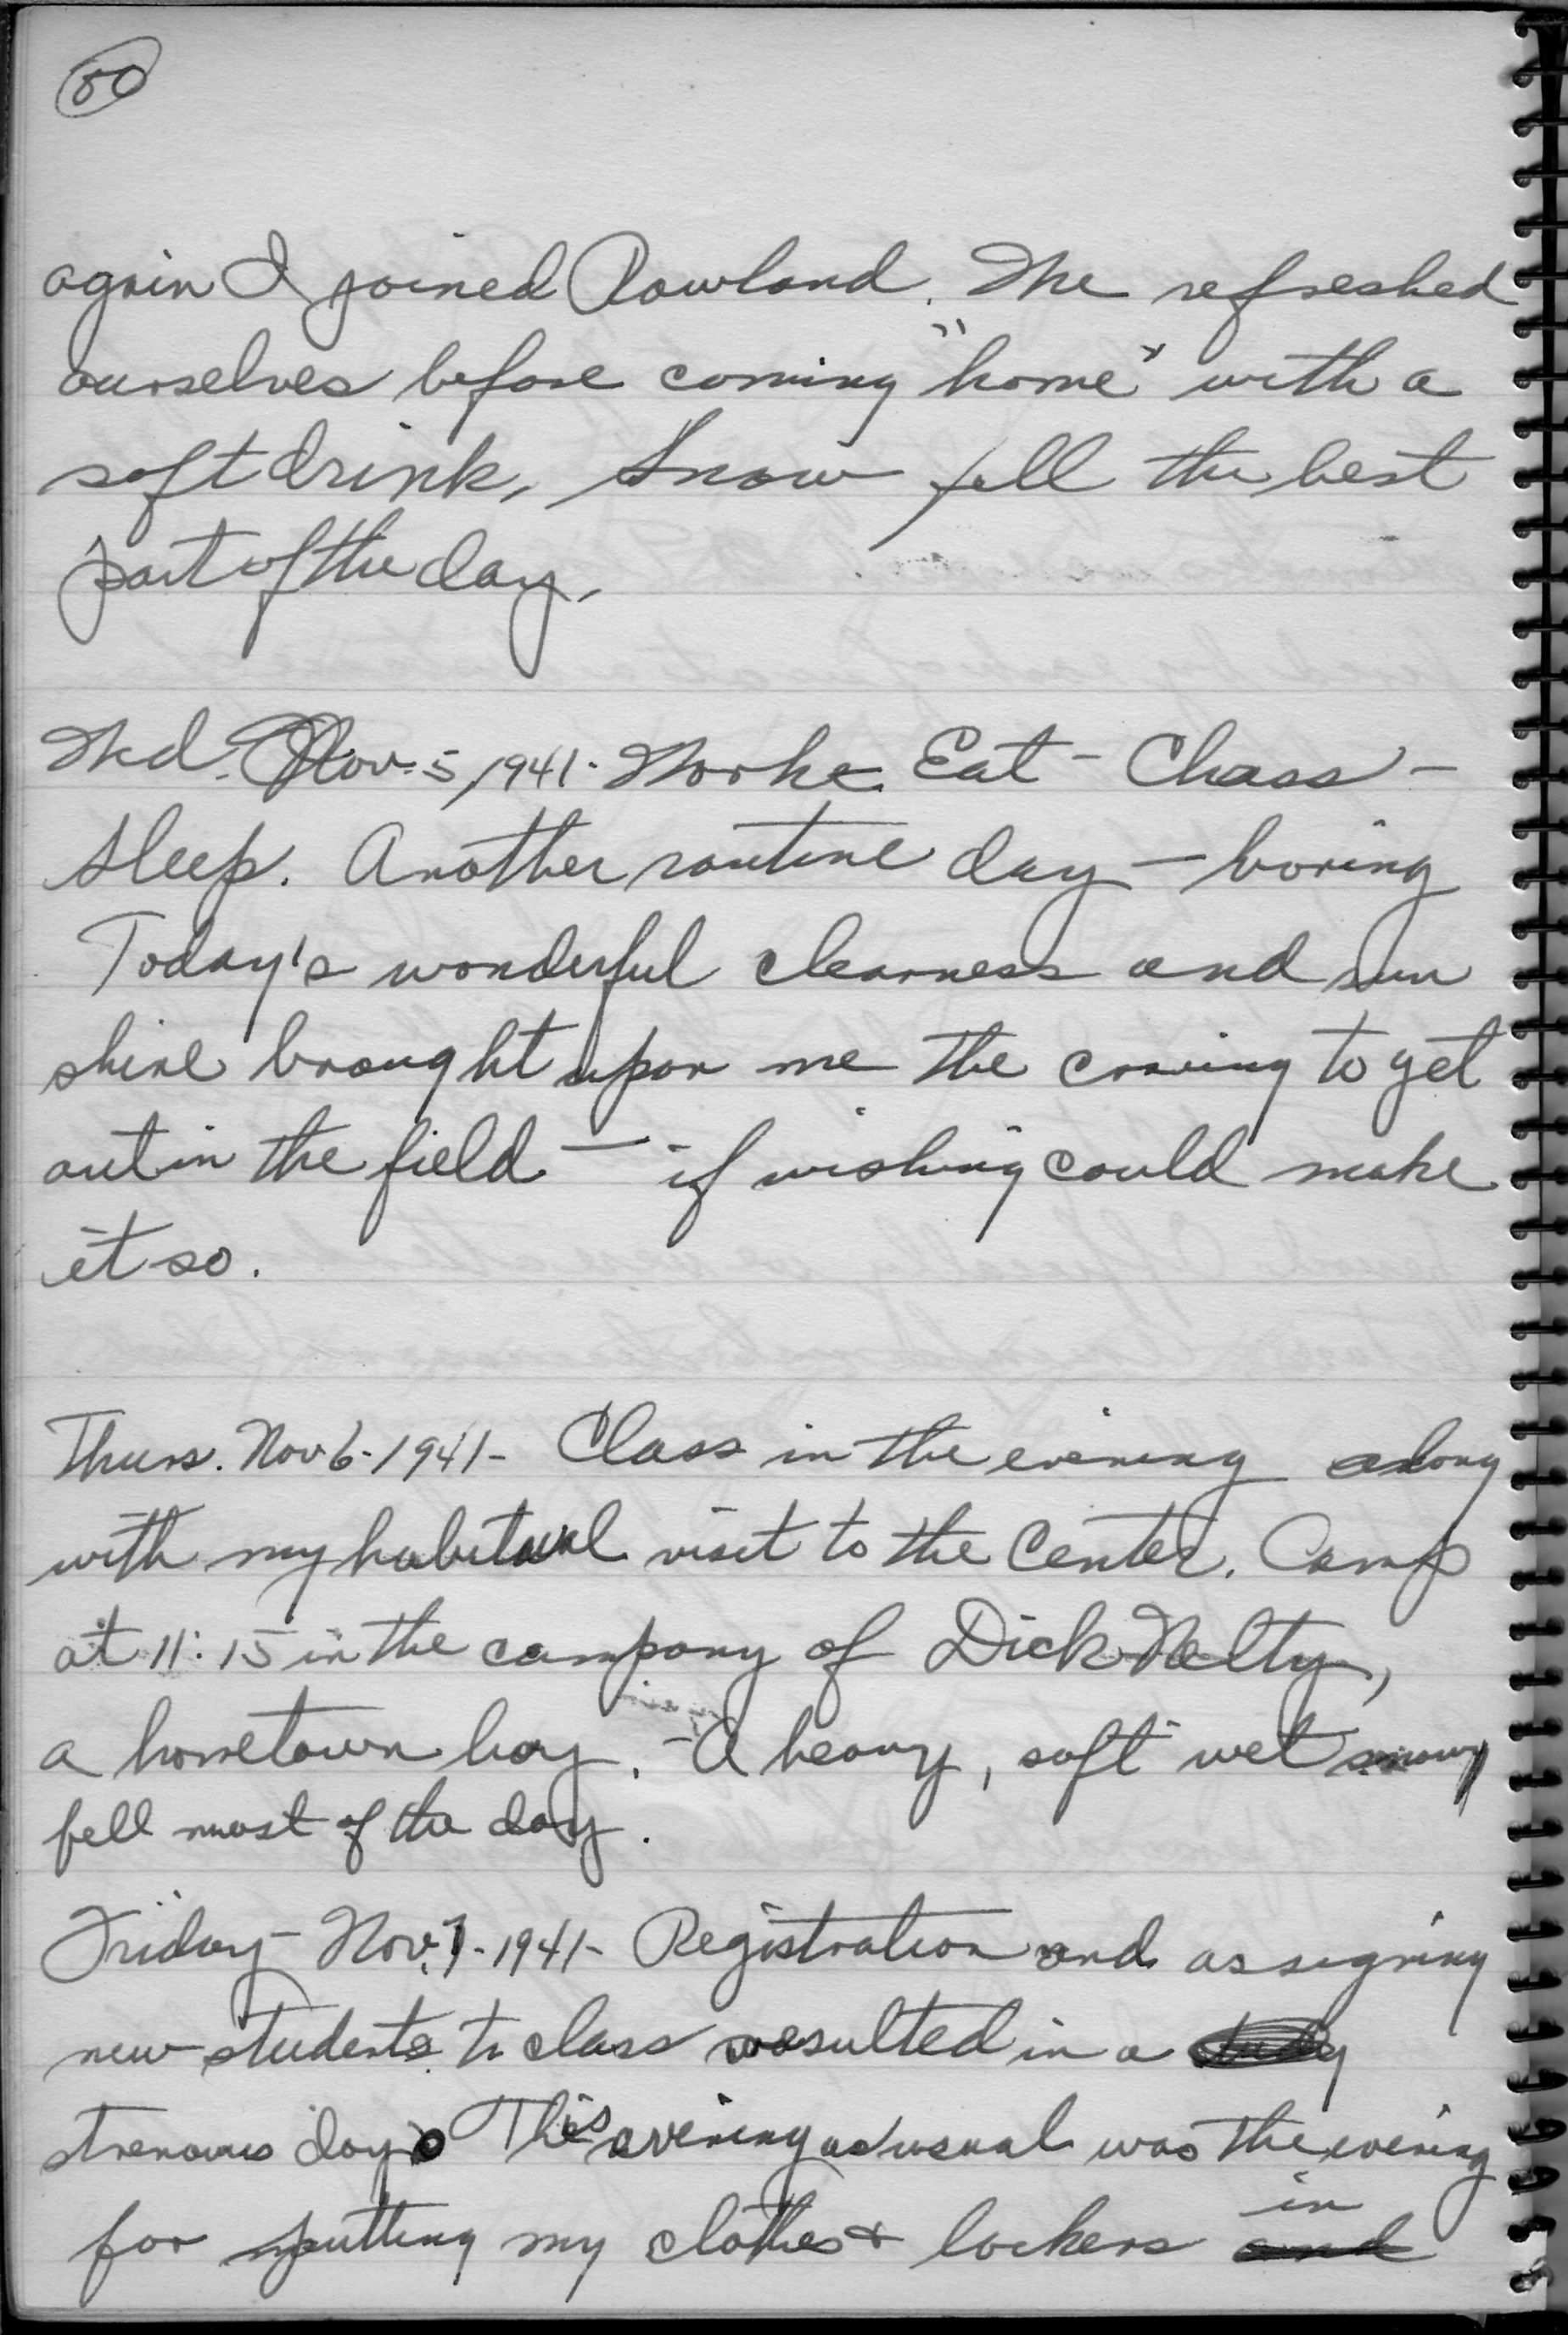 80
again I joined Rowland. We refreshed
ourselves before coming "home" with a
soft drink. Snow fell the best
part of the day.
Wed. Nov. 5, 1941. Work - Eat - Class -
Sleep. Another routine day — boring
Today's wonderful clearness and sun
shine brought upon me the craving to get
out in the field — if wishing could make
it so.
Thurs. Nov 6 - 1941 - Class in the evening along
with my habitual visit to the Center. Camp
at 11:15 in the company of Dick Nelty,
a hometown boy. - A heavy, soft wet snow
fell most of the day.
Friday - Nov. 7 - 1941 - Registration and assigning
new students to class resulted in a
strenous day. This evening as usual was the evening
for putting my clothes & lockers in
and